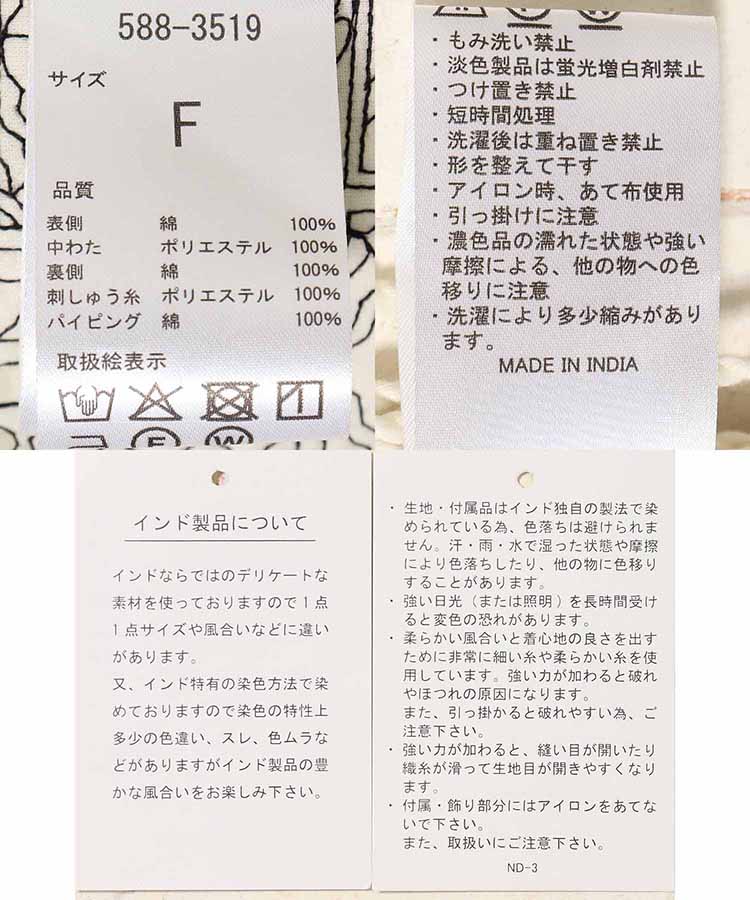 588-3519
サイズ
F
品質
表側 綿 100%
中わた ポリエステル 100%
裏側 綿 100%
刺しゅう糸 ポリエステル 100%
パイピング 綿 100%
取扱絵表示
・もみ洗い禁止
・淡色製品は蛍光増白剤禁止
・つけ置き禁止
・短時間処理
・洗濯後は重ね置き禁止
・形を整えて干す
・アイロン時、あて布使用
・引っ掛けに注意
・濃色品の濡れた状態や強い
摩擦による、他の物への色
移りに注意
・洗濯により多少縮みがあり
ます。
MADE IN INDIA
インド製品について
インドならではのデリケートな
素材を使っておりますので１点
１点サイズや風合いなどに違い
があります。
又、インド特有の染色方法で染
めておりますので染色の特性上
多少の色違い、スレ、色ムラな
どがありますがインド製品の豊
かな風合いをお楽しみ下さい。
・生地・付属品はインド独自の製法で染
められている為、色落ちは避けられま
せん。汗・雨・水で湿った状態や摩擦
により色落ちしたり、他の物に色移り
することがあります。
・強い日光（または照明）を長時間受け
ると変色の恐れがあります。
・柔らかい風合いと着心地の良さを出す
ために非常に細い糸や柔らかい糸を使
用しています。強い力が加わると破れ
やほつれの原因になります。
また、引っ掛かると破れやすい為、ご
注意下さい。
・強い力が加わると、縫い目が開いたり
織糸が滑って生地目が開きやすくなり
ます。
・付属・飾り部分にはアイロンをあてな
いで下さい。
また、取扱いにご注意下さい。
ND-3